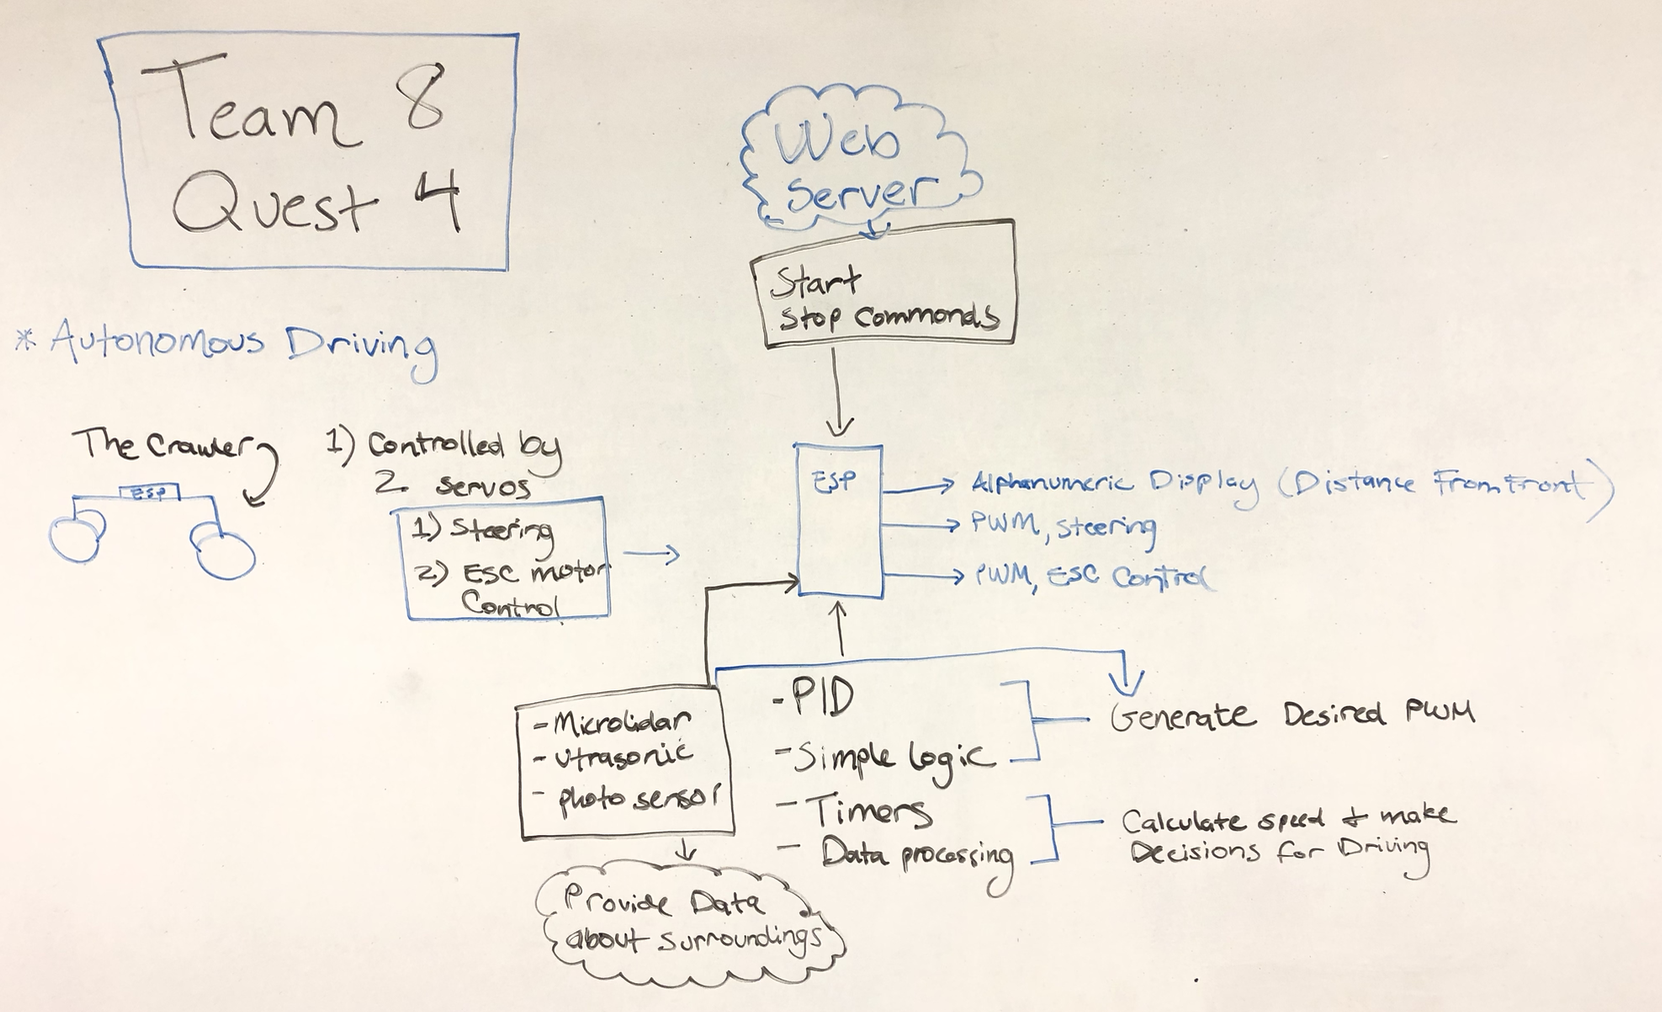 Team 8
Quest 4
Web
Server
Start
Stop Commands
* Autonomous Driving
The Crawler
ESP
1) Controlled by
2. servos
1) Steering
2) ESC motor
Control
ESP
Alphanumeric Display (Distance From Front)
PWM, Steering
PWM, ESC Control
- Microlidar
- Utrasonic
- photo sensor
Provide Data
about surroundings
- PID
- Simple logic
- Timers
- Data processing
Generate Desired PWM
Calculate speed + make
Decisions for Driving